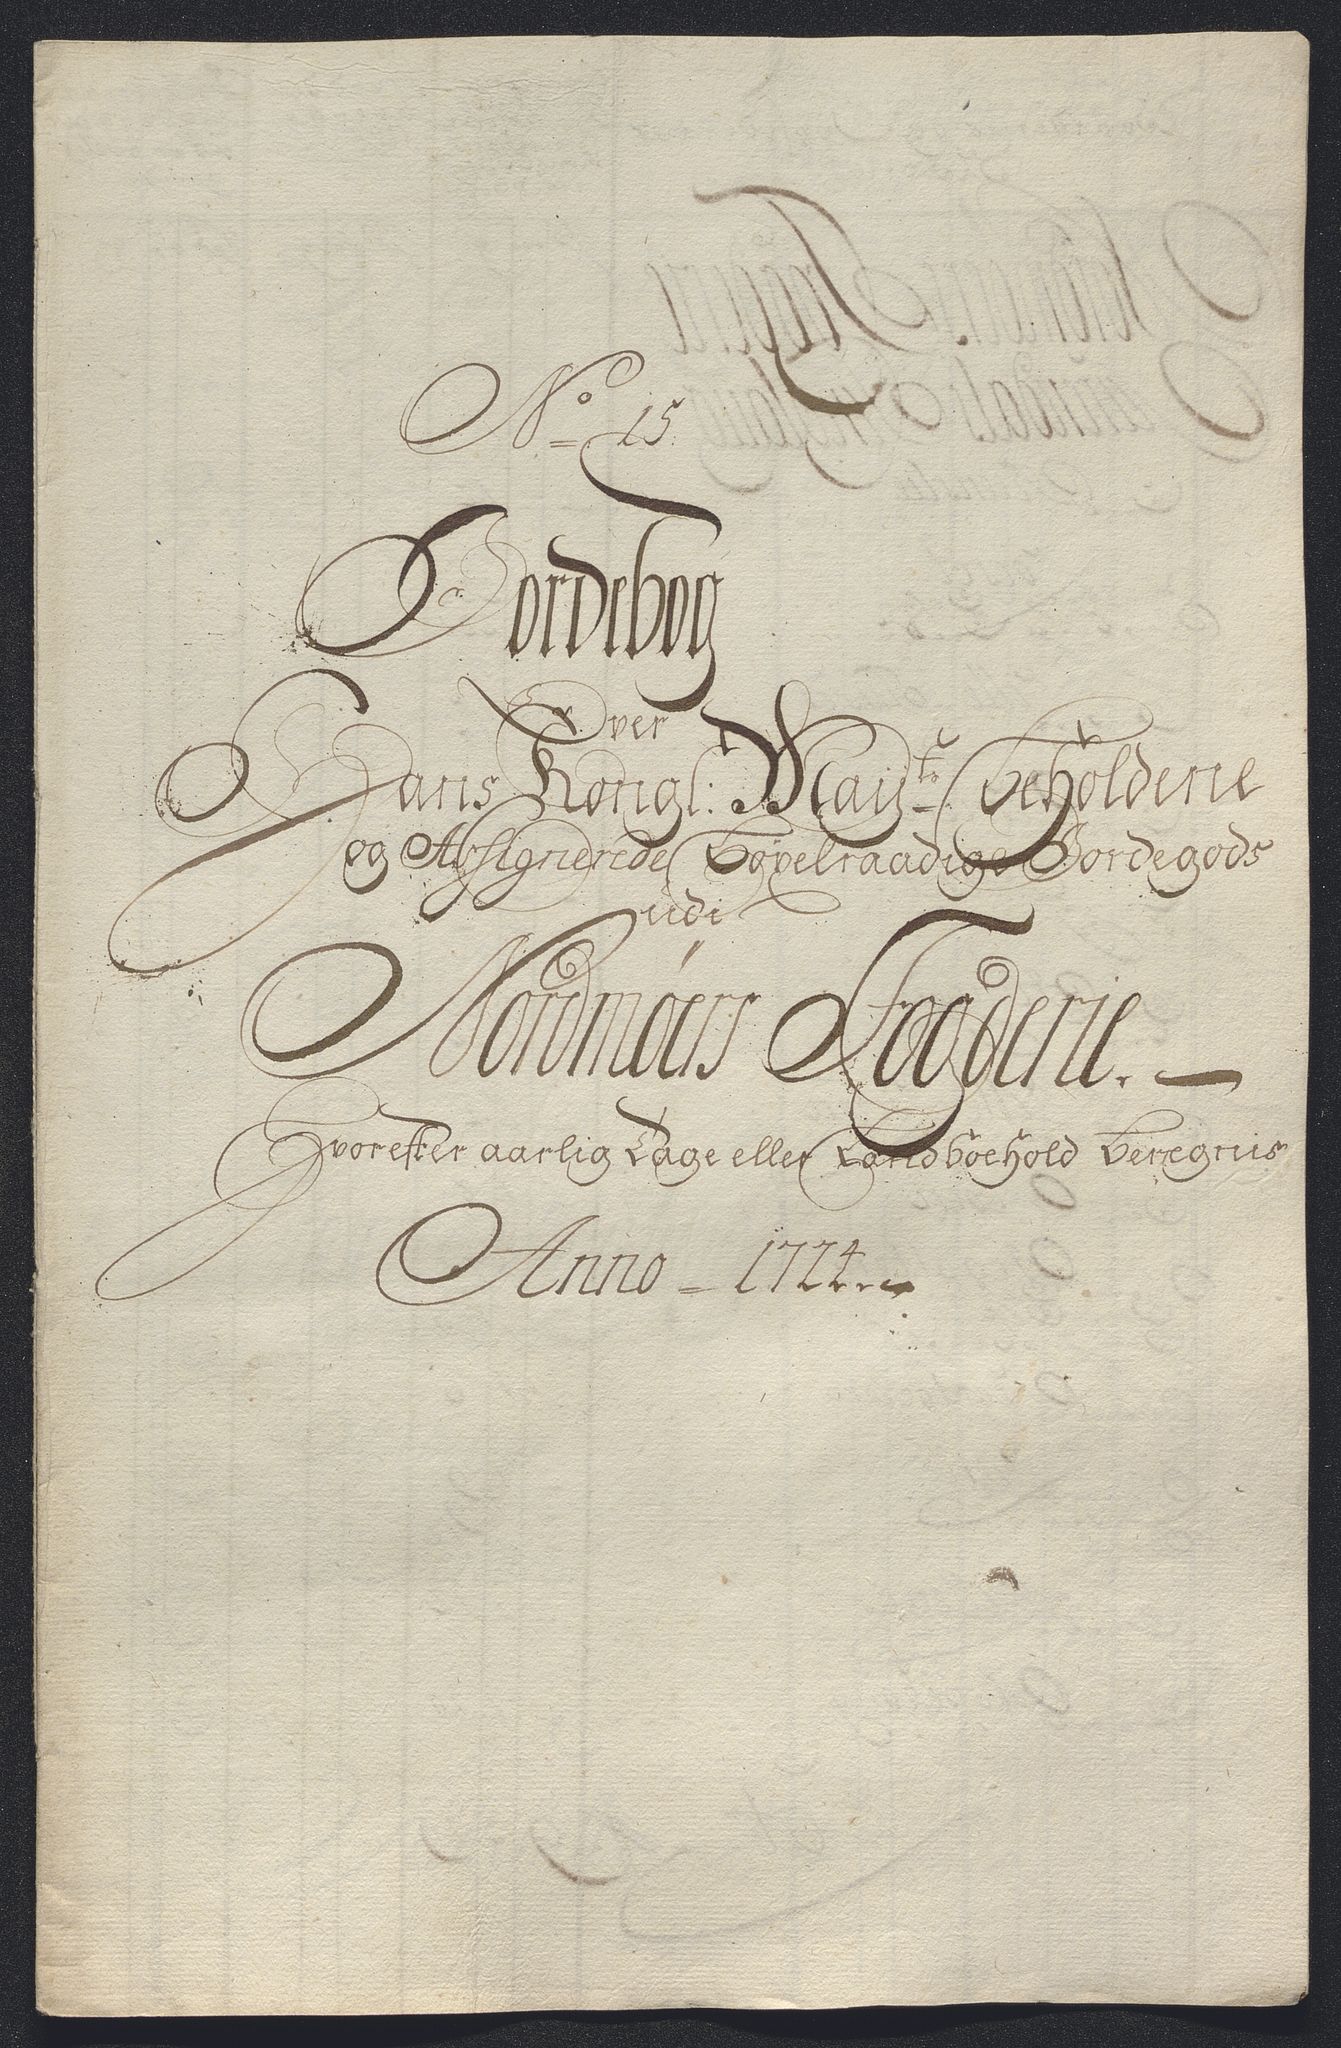 No 15.
Jordebog
Over
Hans Kongl: Maÿts beholdene
og Assignerede bøxelraadige Jordegods
udi
Nordmøers Fogderie.
Hvorefter aarlig Tage eller Landboehold beregnis
Anno 1724.